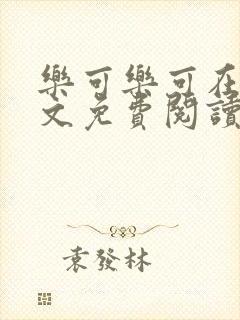 樂可樂可在
文免費閱讀
袁發林